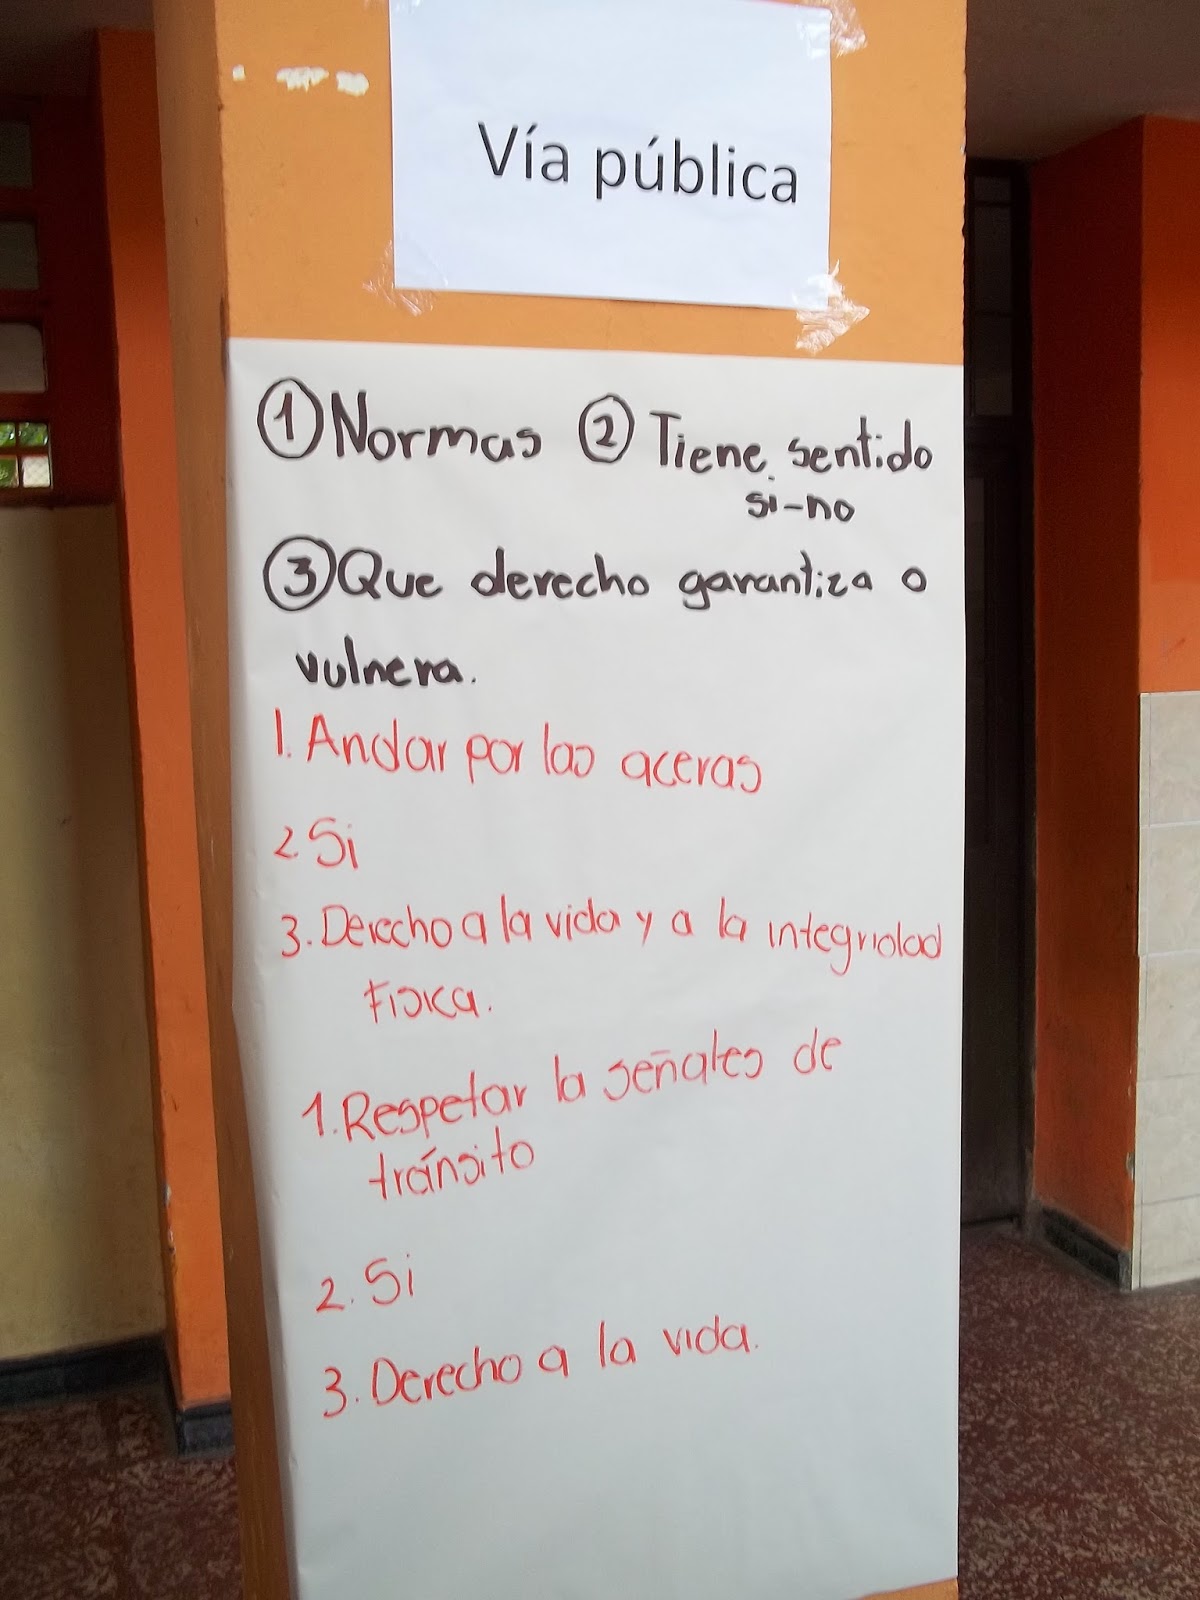 Vía pública
① Normas ② Tiene sentido
si-no
③ Que derecho garantiza o
vulnera.
1. Andar por las aceras
2. Si
3. Derecho a la vida y a la integridad
Fisica.
1. Respetar la señales de
tránsito
2. Si
3. Derecho a la vida.